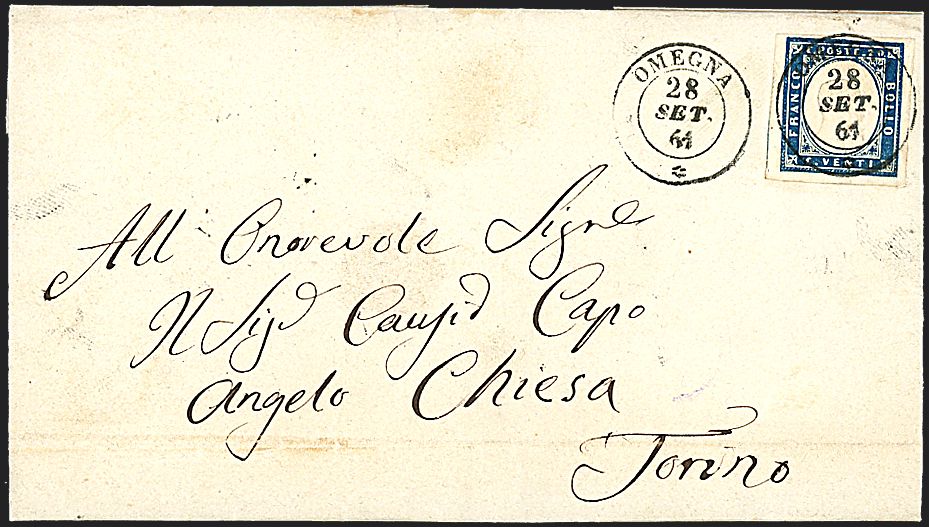 OMEGNA
28
SET.
61
C. POSTE 20
FRANCO
BOLLO
C. VENTI
28
SET.
61
All Onorevole Sigre
Il Sigr Causid Capo
Angelo Chiesa
Torino